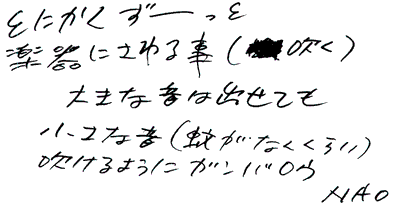 とにかくずーーっと
楽器にさわる事(吹く)
大きな音は出せても
小さな音(蚊がなくくらい)
吹けるようにガンバロウ
NAO